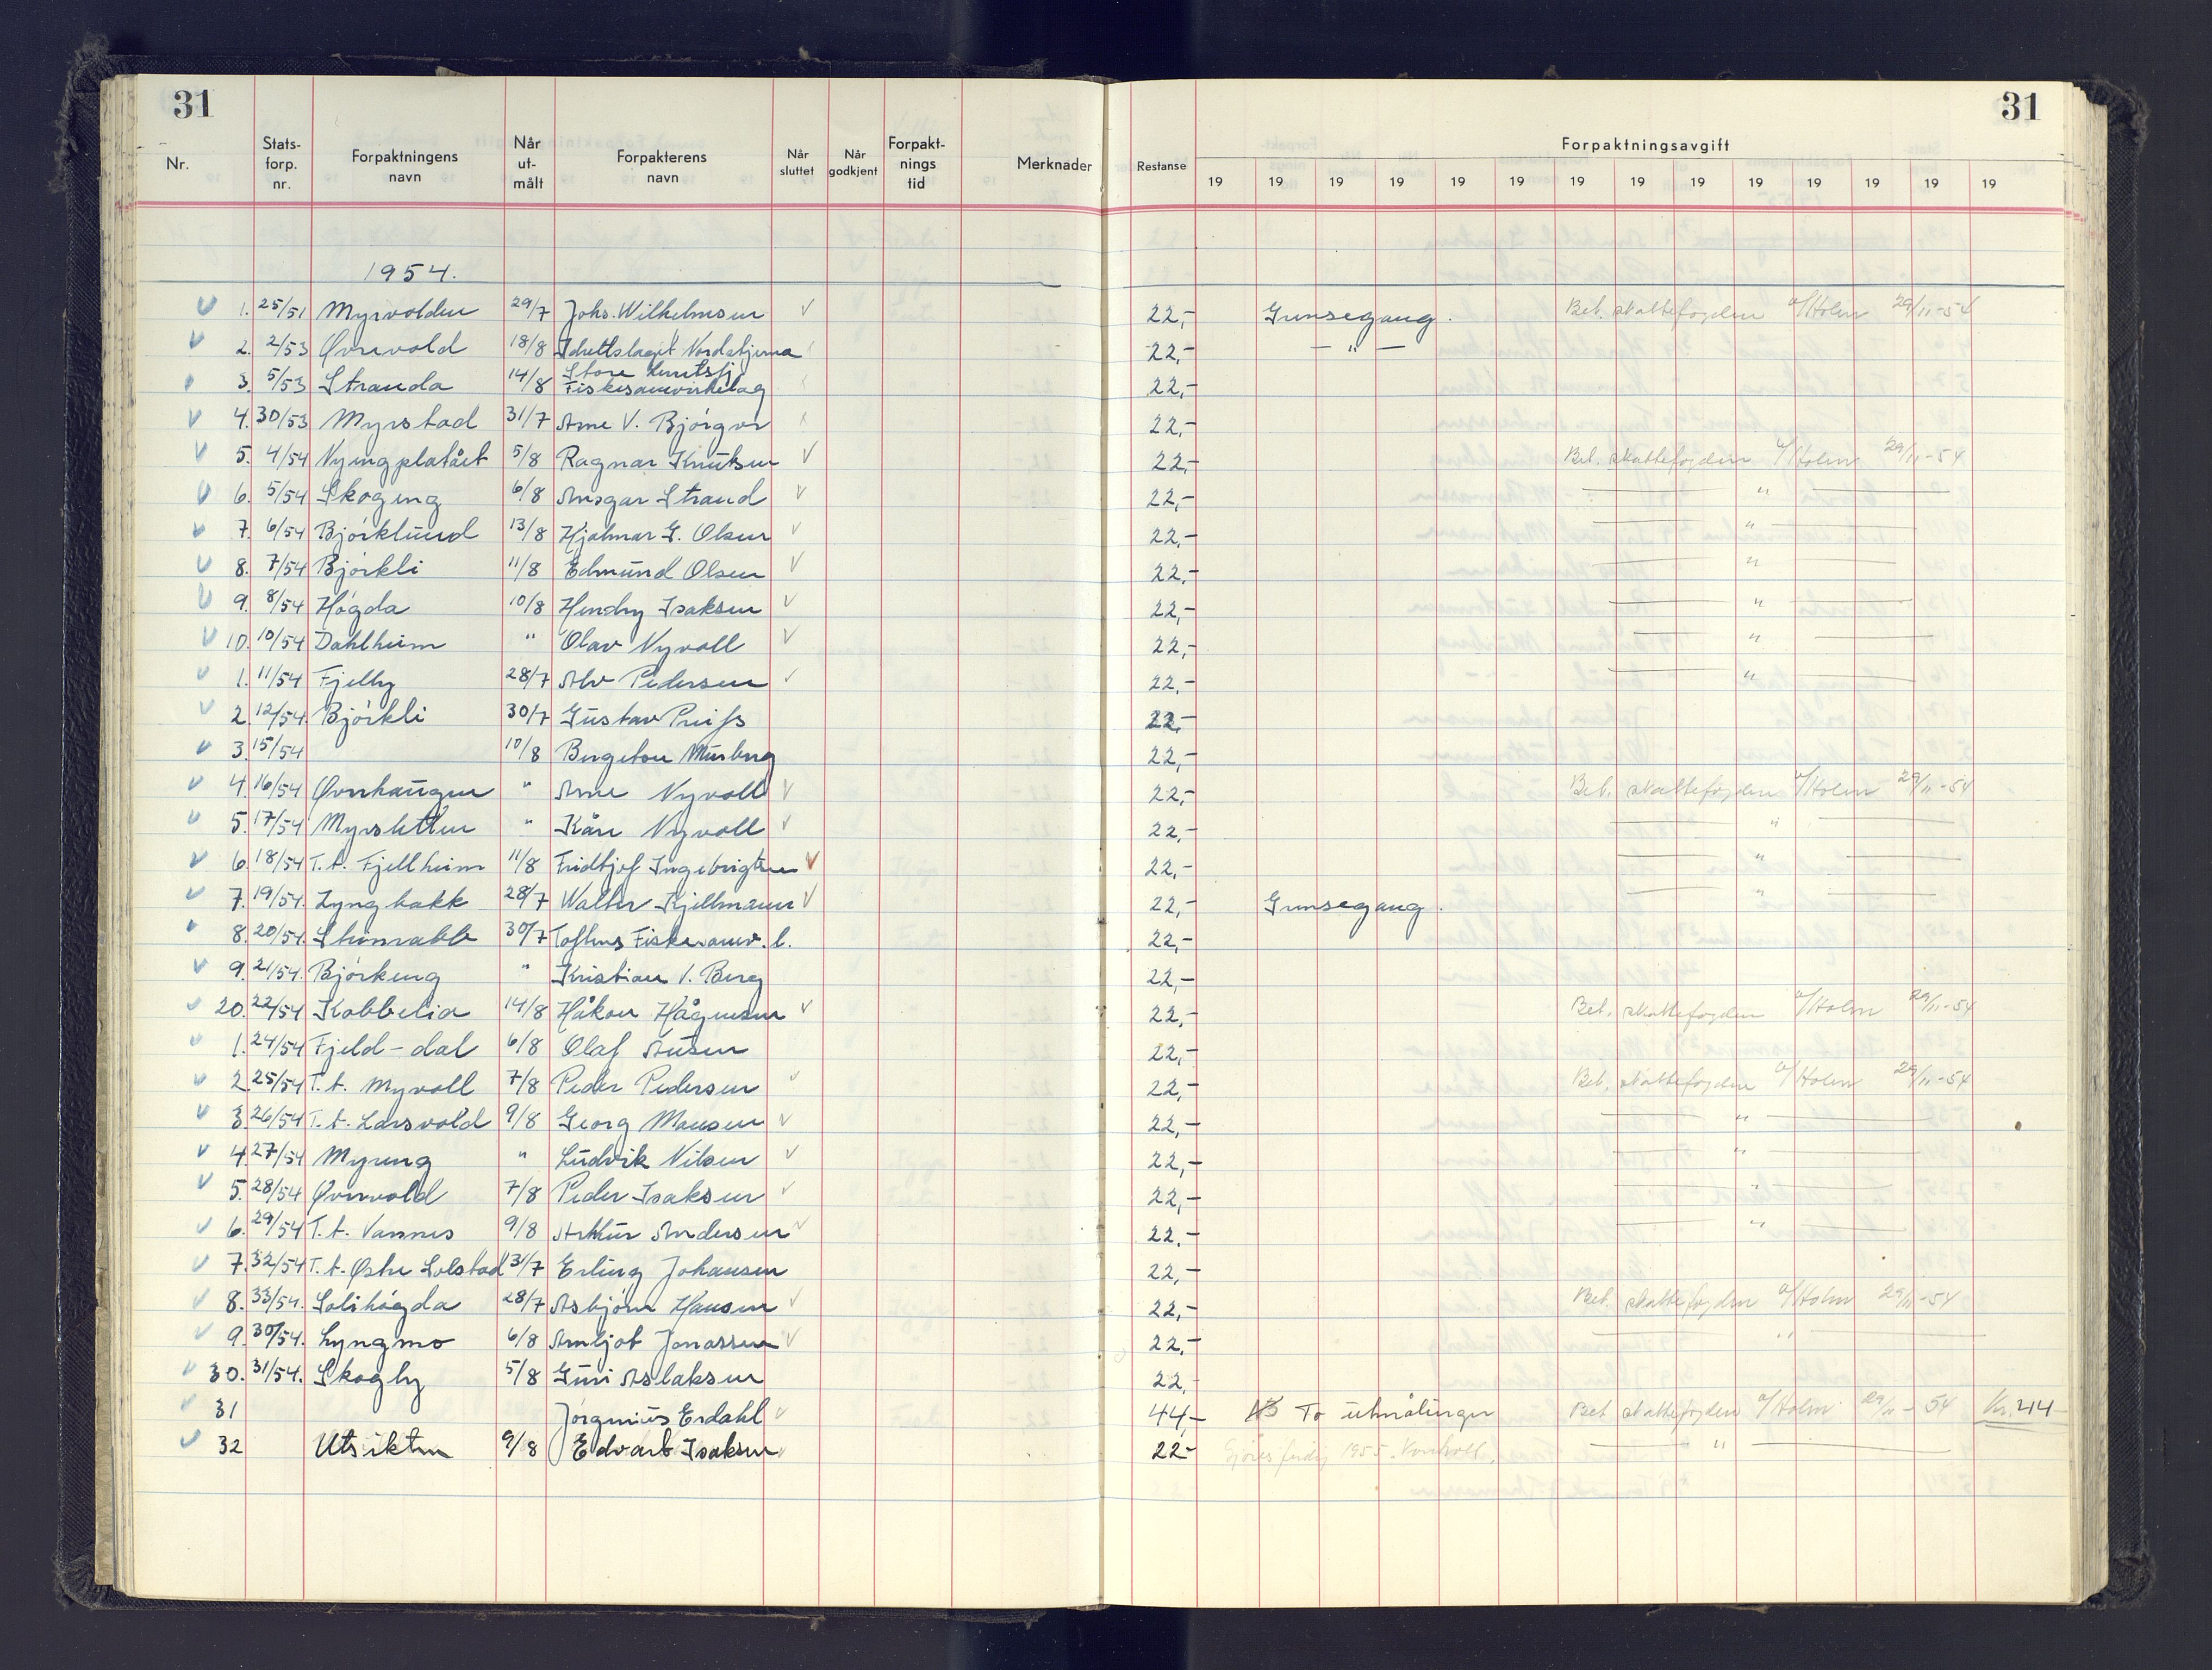 31 31
Nr. Stats-forp. nr. Forpaktningens navn Når ut-målt Forpakterens navn Når sluttet Når godkjent Forpakt-nings tid Merknader Restanse Forpaktningsavgift
19 19 19 19 19 19 19 19 19 19 19 19 19 19
1954.
1. 25/51 Myrvolden 29/7 Johs. Wilhelmsen 22,- Grensegang. Bet. skattefogden a/Holm 29/11-54
2. 2/53 Øvrevold 18/8 Idrettslaget Nordstjerna 22,- — " —
3. 5/53 Stranda 14/8 Store Lerretsfj. Fiskesamvirkelag 22,-
4. 30/53 Myrstad 31/7 Arne V. Bjørgve 22,-
5. 4/54 Nyengplatået 5/8 Ragnar Knutsen 22,- Bet. skattefogden a/Holm 29/11-54
6. 5/54 Skogeng 6/8 Ansgar Strand 22,- — " —
7. 6/54 Bjørklund 13/8 Hjalmar G. Olsen 22,- — " —
8. 7/54 Bjørkli 11/8 Edmund Olsen 22,- — " —
9. 8/54 Høgda 10/8 Hendry Isaksen 22,- — " —
10. 10/54 Dahlheim " Olav Nyvoll 22,- — " —
1. 11/54 Fjelly 28/7 Alv Pedersen 22,- — " —
2. 12/54 Bjørkli 30/7 Gustav 22,-
3. 15/54 10/8 Bergeton Murberg 22,-
4. 16/54 Øvrehaugen " Arne Nyvoll 22,- Bet. skattefogden a/Holm 29/11-54
5. 17/54 Myrsletten " Kåre Nyvoll 22,- — " —
6. 18/54 T.t. Fjellheim 11/8 Fridtjof Ingebrigtsen 22,- — " —
7. 19/54. Lyngbakk 28/7 Walter Kjellmann 22,- Grensegang. — " —
8. 20/54. Steinrabb 30/7 Toftens Fiskesamv.l. 22,-
9. 21/54. Bjørkeng " Kristian V. Berg 22,-
20. 22/54 Kobbelia 14/8 Håkon Hågensen 22,- Bet. skattefogden a/Holm 29/11-54
1. 24/54 Fjeld-dal 6/8 Olaf Ausen 22,-
2. 25/54 T.t. Myvoll 7/8 Peder Pedersen 22,- Bet. skattefogden a/Holm 29/11-54
3. 26/54 T.t. Larsvold 9/8 Georg Monsen 22,- — " —
4. 27/54 Myreng " Ludvik Nilsen 22,- — " —
5. 28/54 Øvrevold 7/8 Peder Isaksen 22,- — " —
6. 29/54 T.t. Vannes 9/8 Arthur Andersen 22.- — " —
7. 32/54 T.t. Østre Solstad 31/7 Erling Johansen 22,-
8. 33/54. Solihøgda 28/7 Asbjørn Hansen 22,- Bet. skattefogden a/Holm 29/11-54
9. 30/54. Lyngmo 6/8 Arnljot Jonassen 22,- — " —
30. 31/54. Skogly 5/8 Guri Aslaksen 22,-
31 Jørgenius Erdahl 44,- To utmålinger Bet skattefogden a/Holm 29/11-54 Kr. 44
32 Utsikten 9/8 Edvart Isaksen 22- Gjøres ferdig 1955. Kontroll. — " —